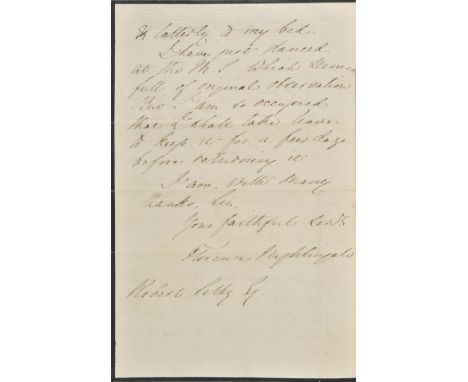 & latterly to my bed.
I have just glanced
at the M.S. which seems
full of original observation
But I am so occupied
that I shall take leave
to keep it for a few days
before returning it
I am, with many
thanks, Sir,
Your faithful Servt
Florence Nightingale
Robert Esq